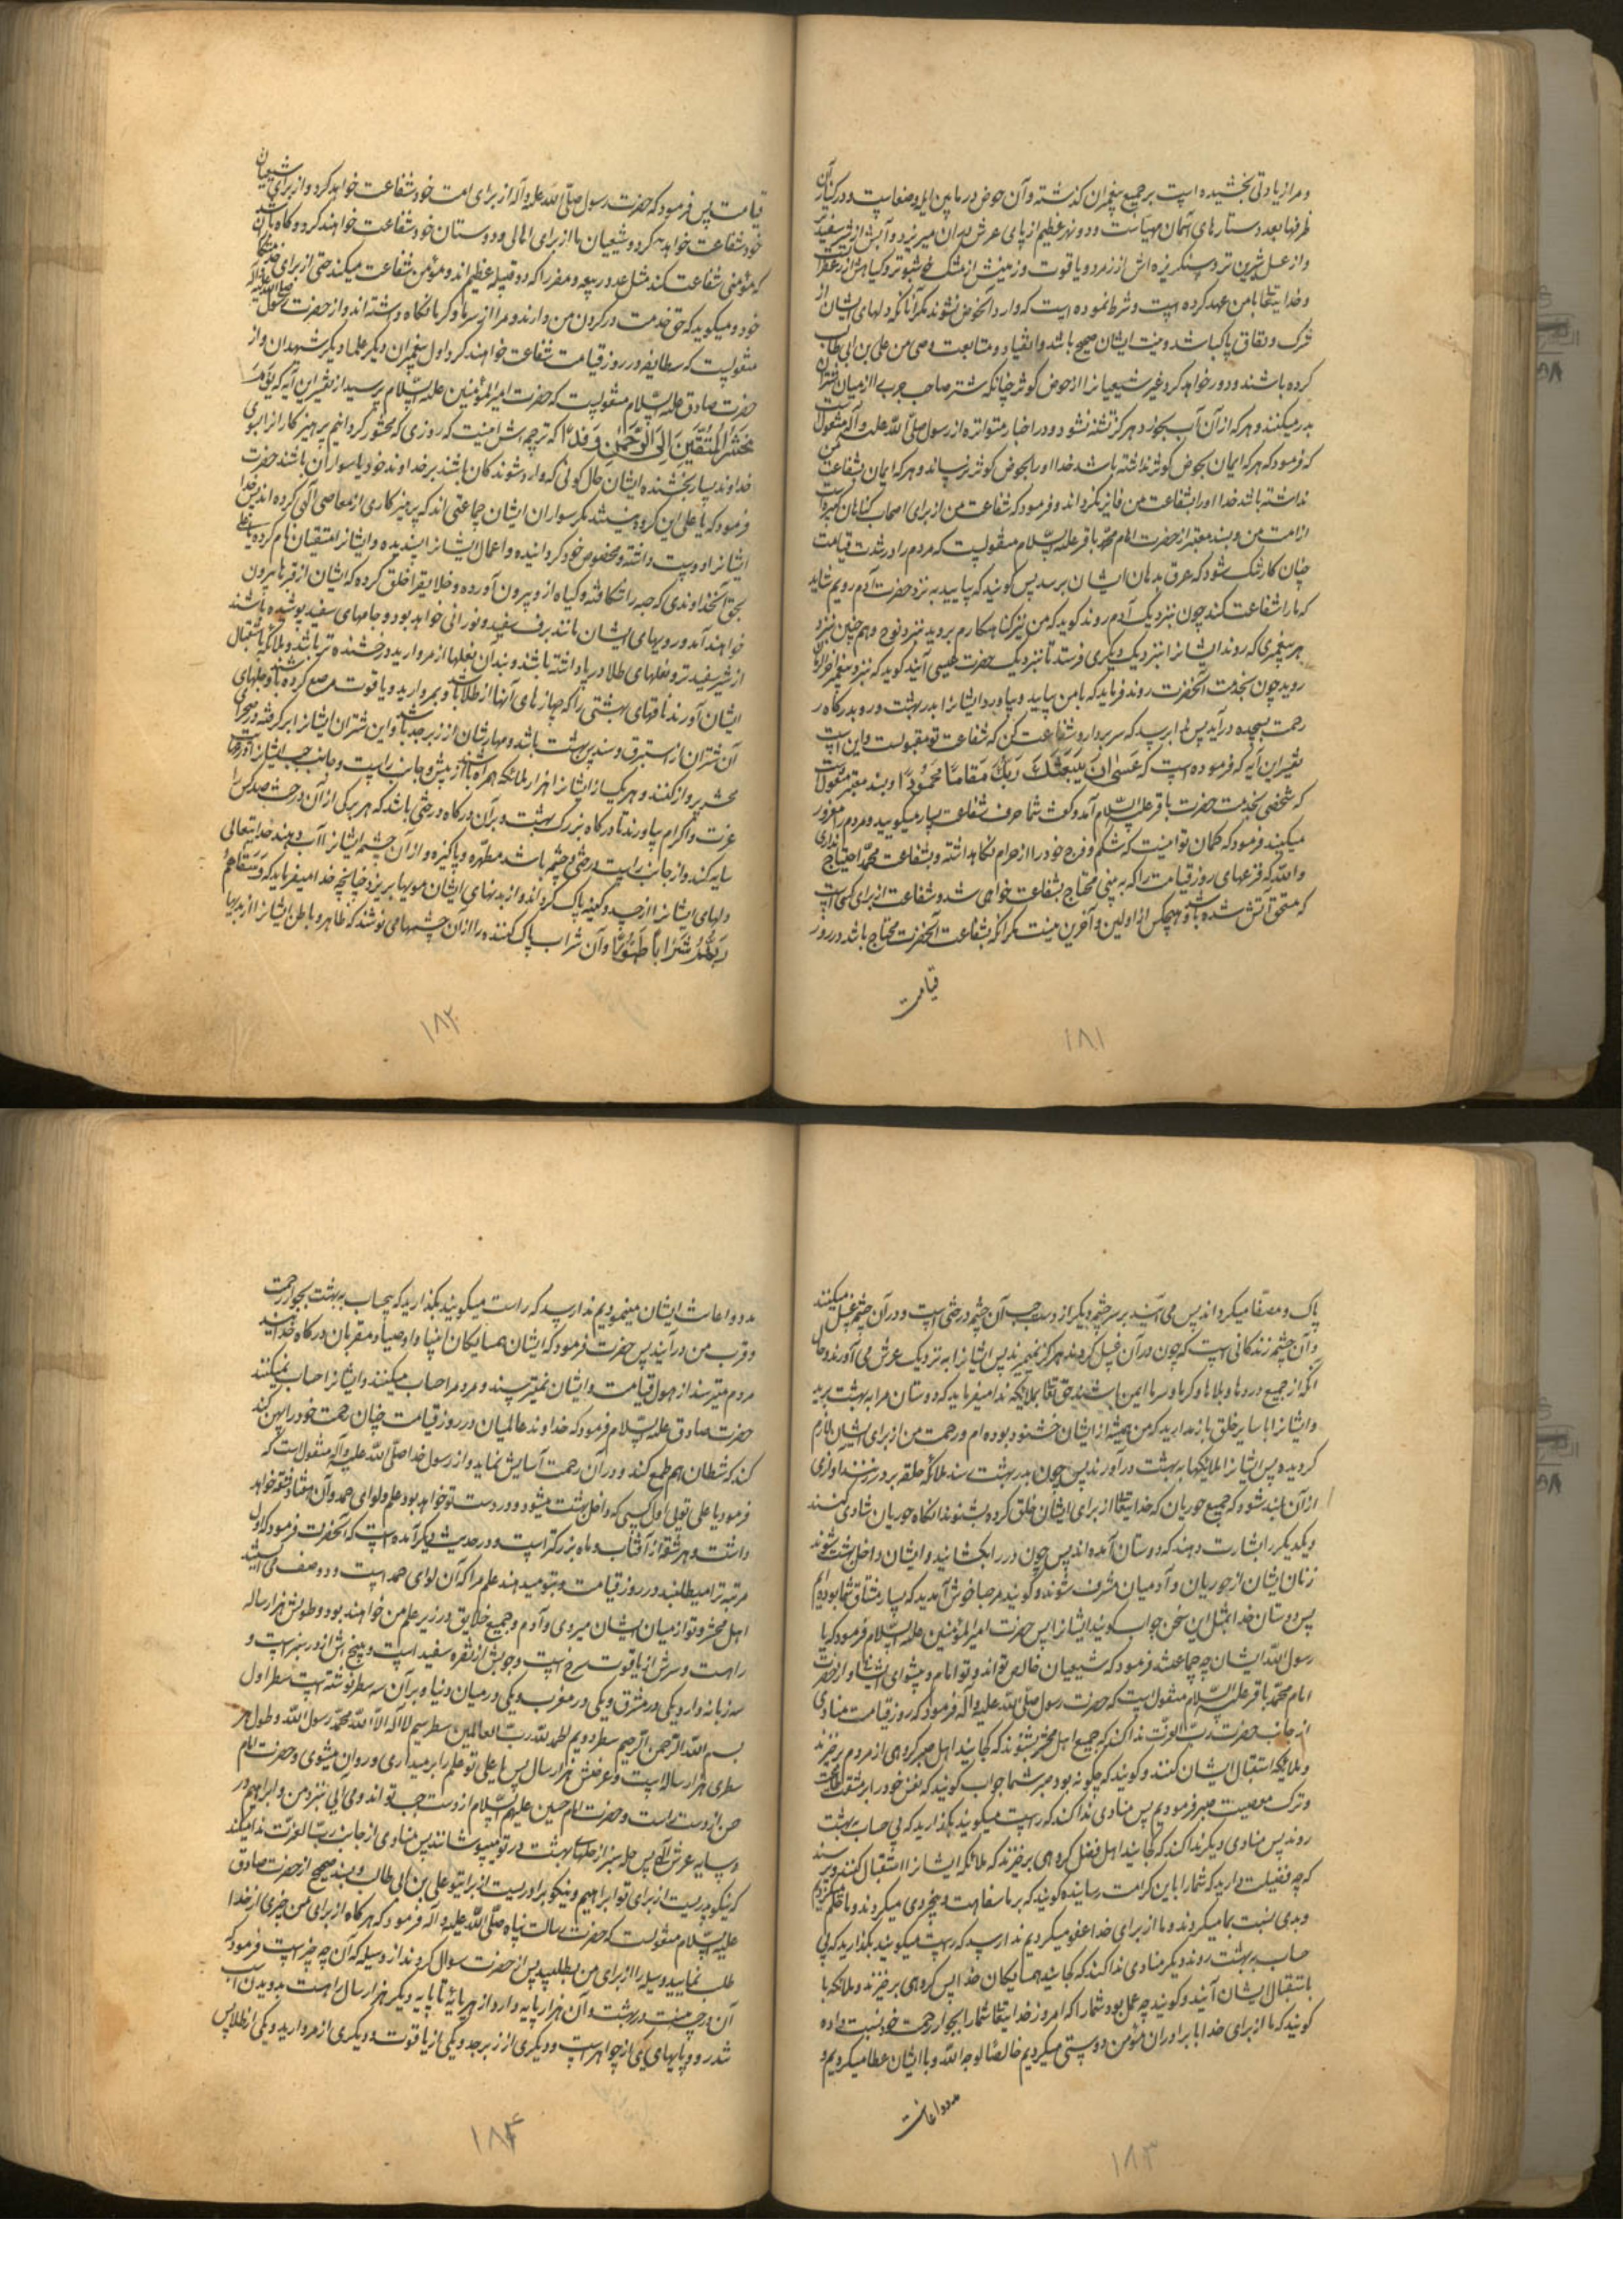 و مرا زیادتی بخشیده است بر جمیع پیغمبران گذشته و آن حوض در مابین ایله و صنعاست و در کنار آن
ظرفها بعدد ستارهای آسمان مهیاست و دو نهر عظیم از پای عرش بدان میریزد و آبش از شیر سفیدتر
و از عسل شیرین تر و سنگریزه اش از زمرد و یاقوت و زمینش از مشک خوشبوتر و گیاهش از زعفران
و خدایتعالی با من عهد کرده است و شرط نموده است که وارد آنحوض نشوند مگر آنانکه دلهای ایشان از
شرک و نفاق پاک باشد و نیت ایشان صحیح باشد و انقیاد و متابعت وصی من علی بن ابی طالب
کرده باشند و دور خواهد کرد غیر شیعیانرا از حوض کوثر چنانکه شتر صاحب جرب را از میان شتران
بدر میکنند و هر که از آن آب بخورد هرگز تشنه نشود و در اخبار متواتره از رسول صلّی اللّه علیه و آله منقول است
که فرمود که هر که ایمان بحوض کوثر نداشته باشد خدا او را بحوض کوثر نرساند و هر که ایمان بشفاعت من
نداشته باشد خدا او را بشفاعت من فایز نگرداند و فرمود که شفاعت من از برای اصحاب گناهان کبیره است
از امت من و بسند معتبر از حضرت امام محمد باقر علیه السّلام منقولست که مردم را در شدت قیامت
چنان کار تنگ شود که عرق بدهان ایشان برسد پس گویند که بیایید به نزد حضرت آدم رویم شاید
که ما را شفاعت کند چون نزدیک آدم روند گوید که من نیز گناهکارم بروید نزد نوح و همچنین نزد
هر پیغمبری که روند ایشانرا نزدیک دیگری فرستد تا نزدیک حضرت عیسی آیند گوید که نزد پیغمبر آخرالزمان
روید چون بخدمت آنحضرت روند فرماید که با من بیایید و بیاورد ایشانرا بدر بهشت و رو بدرگاه
رحمت بسجده درآید پس ندا رسد که سر بردار و شفاعت کن که شفاعت تو مقبولست و این است
تفسیر این آیه که فرموده است که عَسَىٰ أَنْ يَبْعَثَكَ رَبُّكَ مَقَامًا مَحْمُودًا و بسند معتبر منقول است
که شخصی بخدمت حضرت باقر علیه السّلام آمد و گفت شما حرف شفاعت بسیار میگویید و مردم را مغرور
میکنید فرمود که گمان تو اینست که شکم و فرج خود را از حرام نگاه داشته و بشفاعت محمّد احتیاج نداری
و اللّه که فزعهای روز قیامت را که ببینی محتاج بشفاعت خواهی شد و شفاعت از برای کسی است
که مستحق آتش شده باشد و هیچکس از اولین و آخرین نیست مگر آنکه بشفاعت آنحضرت محتاج باشد در روز
قیامت
۱۸۱
قیامت پس فرمود که حضرت رسول صلّی اللّه علیه و آله از برای امت خود شفاعت خواهد کرد و از برای شیعیان
خود شفاعت خواهیم کرد و شیعیان ما از برای اهالی و دوستان خود شفاعت خواهند کرد و گاه باشد
که مؤمنی شفاعت کند مثل عدد ربیعه و مضر را که دو قبیله عظیم اند و مؤمن شفاعت میکند حتی از برای خدمتکار
خود و میگوید که حق خدمت در گردن من دارند و مرا از سرما و گرما نگاه داشته اند و از حضرت رسول صلی اللّه علیه و آله
منقولست که سه طایفه در روز قیامت شفاعت خواهند کرد اول پیغمبران دیگر علما و دیگر شهیدان و از
حضرت صادق علیه السّلام منقولست که حضرت امیرالمؤمنین علیه السّلام پرسید از تفسیر این آیه که يَوْمَ
نَحْشُرُ الْمُتَّقِينَ إِلَى الرَّحْمَٰنِ وَفْدًا که ترجمه اش اینست که روزی که محشور گردانیم پرهیزکارانرا بسوی
خداوند بسیار بخشنده ایشان حال کونی که وارد شوند کان باشند بر خداوند خود یا سواران باشند حضرت
فرمود که یا علی این گروه نیستند مگر سواران ایشان جماعتی اند که پرهیزکاری از معاصی الهی کرده اند پس خدا
ایشانرا دوست داشته و مخصوص خود گردانیده و اعمال ایشانرا پسندیده و ایشانرا متقیان نام کرده یا علی
بحق آنخداوندی که حبه را شکافته و گیاه از او بیرون آورده و خلایق را خلق کرده که ایشان از قبرها بیرون
خواهند آمد و رویهای ایشان مانند برف سفید و نورانی خواهد بود و جامهای سفید پوشیده باشند
از شیر سفیدتر و نعلهای طلا در پا داشته باشند و بندان نعلها از مروارید درخشنده تر باشد و ملائکه باستقبال
ایشان آورند ناقهای بهشتی را که جهازهای آنها از طلا باشد و بمروارید و یاقوت مرصع کرده باشند و جلهای
آن شتران از استبرق و سندس بهشت باشد و مهارشان از زبرجد باشد و این شتران ایشانرا برگرفته در صحرای
محشر پرواز کنند و هر یک از ایشانرا هزار ملائکه همراه باشند از پیش و جانب راست و جانب چپ ایشانرا
عزت و اکرام بیاورند تا درگاه بزرگ بهشت و بر آن درگاه درختی باشد که هر برگی از آن درخت صد کس را
سایه کند و از جانب راست درخت چشمه باشد مطهره و پاکیزه و از آن چشمه ایشانرا آب دهند خدایتعالی
دلهای ایشانرا از حسد و کینه پاک گرداند و از بدنهای ایشان مویها بریزد چنانچه خدا میفرماید که وَسَقَاهُمْ
رَبُّهُمْ شَرَابًا طَهُورًا و آن شراب پاک کننده را از ان چشمهامی نوشند که ظاهر و باطن ایشانرا از بدیها
۱۸۲
پاک و مصفا میگرداند پس می آیند بر سر چشمه دیگر از دست چپ آن چشمه درختی است و در آن چشمه غسل میکنند
و آن چشمه زندگانی است که چون در آن غسل کردند هرگز نمیمیرند پس ایشانرا به نزدیک عرش می آورند و حال
آنکه از جمیع دردها و بلاها و گرما و سرما ایمن باشند حق تعالی بملائکه ندا میفرماید که دوستان مرا به بهشت برید
و ایشانرا با سایر خلق باز مدارید که من همیشه از ایشان خشنود بوده ام و رحمت من از برای ایشان لازم
گردیده پس ایشانرا ملائکها به بهشت درآورند پس چون بدر بهشت رسند ملائکه حلقه بر در زنند آوازی
از آن بلند شود که جمیع حوریان که خدایتعالی از برای ایشان خلق کرده بشنوند آنگاه حوریان شادی کنند
و یکدیگر را بشارت دهند که دوستان آمده اند پس چون در را بگشانید و ایشان داخل بهشت شوند
زنان ایشان از حوریان و آدمیان مشرف شوند و گویند مرحبا خوش آمدید که بسیار مشتاق شما بوده ایم
پس دوستان خدا بمثل این سخن جواب گویند ایشانرا پس حضرت امیرالمؤمنین علیه السّلام فرمود که یا
رسول اللّه ایشان چه جماعتند فرمود که شیعیان خالص تواند و تو امام و پیشوای ایشان و از حضرت
امام محمّد باقر علیه السّلام منقول است که حضرت رسول صلّی اللّه علیه و آله فرمود که روز قیامت منادی
از جانب حضرت ربّ العزّت ندا کند که جمیع اهل محشر بشنوند که کجایند اهل صبر گروهی از مردم برخیزند
و ملائکه استقبال ایشان کنند و گویند که چگونه بود صبر شما جواب گویند که نفس خود را بر مشقت طاعت
و ترک معصیت صبر فرمودیم پس منادی ندا کند که راست میگویند بگذارید که بی حساب به بهشت
روند پس منادی دیگر ندا کند که کجایند اهل فضل گروهی برخیزند که ملائکه ایشانرا استقبال کنند و پرسند
که چه فضیلت دارید که شما را باین کرامت رسانیده گویند که بر ما سفاهت و بیخردی میکردند و ما حلم میکردیم
و بدی نسبت بما میکردند و ما از برای خدا عفو میکردیم ندا رسد که راست میگویند بگذارید که بی
حساب به بهشت روند دیگر منادی ندا کند که کجایند همسایگان خدا پس گروهی برخیزند و ملائکه با
باستقبال ایشان آیند و گویند چه عمل بود شما را که امروز خدایتعالی شما را بجوار رحمت خود نسبت داده
گویند که ما از برای خدا با برادران مؤمن دوستی میکردیم خالصاً لوجه اللّه و با ایشان عطا میکردیم و
مدد و اعانت
۱۸۳
مدد و اعانت ایشان مینمودیم ندا رسد که راست میگویند بگذارید که بیحساب به بهشت بجوار رحمت
و قرب من درآیند پس حضرت فرمود که ایشان همسایگان انبیا و اوصیا و مقربان درگاه خدا اند
مردم میترسند از هول قیامت و ایشان نمیترسند و مردم را حساب میکنند و ایشانرا حساب نمیکنند
حضرت صادق علیه السّلام فرمود که خداوند عالمیان در روز قیامت چنان رحمت خود را پهن کند
کند که شیطان هم طمع کند و در آن رحمت آسایش نماید و از رسول خدا صلّی اللّه علیه و آله منقول است که
فرمود یا علی تویی اول کسی که داخل بهشت میشود و در دست تو خواهد بود علم و لوای حمد و آن هفتاد شقه خواهد
داشت و هر شقه از آفتاب و ماه بزرگتر است و در حدیث دیگر آمده است که آنحضرت فرمود که اول
مرتبه ترا میطلبند در روز قیامت و بتو میدهند علم مرا که آن لوای حمد است و دو صف می ایستند
اهل محشر و تو از میان ایشان میروی و آدم و جمیع خلایق در زیر علم من خواهند بود و طولش هزار ساله
راهست و سرش از یاقوت سرخ است و چوبش از نقره سفید است و بیخش از در سبز است و
سه زبانه دارد یکی در مشرق و یکی در مغرب و یکی در میان دنیا و بر آن سه سطر نوشته است سطر اول
بسم اللّه الرّحمن الرّحیم سطر دویم الحمد للّه ربّ العالمین سطر سیم لا اله الّا اللّه محمّد رسول اللّه و طول هر
سطری هزار ساله است و عرضش هزار سال پس یا علی تو علم را برمیداری و روان میشوی و حضرت امام
حسن از دست راست و حضرت امام حسین علیهم السّلام از دست چپ تو اند و می آیی نزد من و ابراهیم در
و سایه عرش الهی پس حله سبز از حلهای بهشت در تو میپوشانند پس منادی از جانب ربّ العزّت ندا میکند
که نیکو پدریست از برای تو ابراهیم و نیکو برادریست از برای تو علی بن ابی طالب و بسند صحیح از حضرت صادق
علیه السّلام منقولست که حضرت رسالت پناه صلّی اللّه علیه و آله فرمود که هرگاه از برای من چیزی از خدا
طلب نمایید وسیله را از برای من بطلبید پس از حضرت سوال کردند از وسیله که آن چه چیز است فرمود که
آن درجه منست در بهشت و آن هزار پایه دارد از هر پایه تا پایه دیگر هزار سال راهست بدویدن اسب
تندرو و پایهای یکی از جواهر است و دیگری از زبرجد و یکی از یاقوت و دیگری از مروارید و یکی از طلا پس
۱۸۴